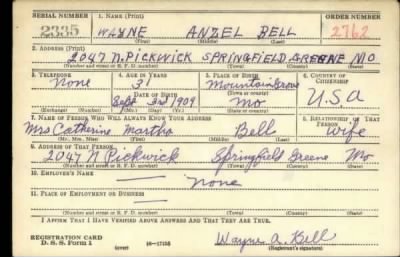 SERIAL NUMBER 1. NAME (Print) ORDER NUMBER
2335 WAYNE ANZEL BELL 2762
(First) (Middle) (Last)
2. ADDRESS (Print)
2047 N. PICKWICK SPRINGFIELD GREENE MO
(Number and street or R. F. D. number) (Town) (County) (State)
3. TELEPHONE 4. AGE IN YEARS 5. PLACE OF BIRTH 6. COUNTRY OF CITIZENSHIP
None 31 Mountain Grove U.S.A
DATE OF BIRTH (Town or county)
Sept 3rd 1909 Mo
(Exchange) (Number) (Mo.) (Day) (Yr.) (State or country)
7. NAME OF PERSON WHO WILL ALWAYS KNOW YOUR ADDRESS 8. RELATIONSHIP OF THAT PERSON
Mrs Catherine Martha Bell Wife
(Mr., Mrs., Miss) (First) (Middle) (Last)
9. ADDRESS OF THAT PERSON
2047 N Pickwick Springfield Greene Mo
(Number and street or R. F. D. number) (Town) (County) (State)
10. EMPLOYER'S NAME
None
11. PLACE OF EMPLOYMENT OR BUSINESS
(Number and street or R. F. D. number) (Town) (County) (State)
I AFFIRM THAT I HAVE VERIFIED ABOVE ANSWERS AND THAT THEY ARE TRUE.
REGISTRATION CARD
D. S. S. Form 1 (over) 16—17105 Wayne A. Bell
(Registrant's signature)